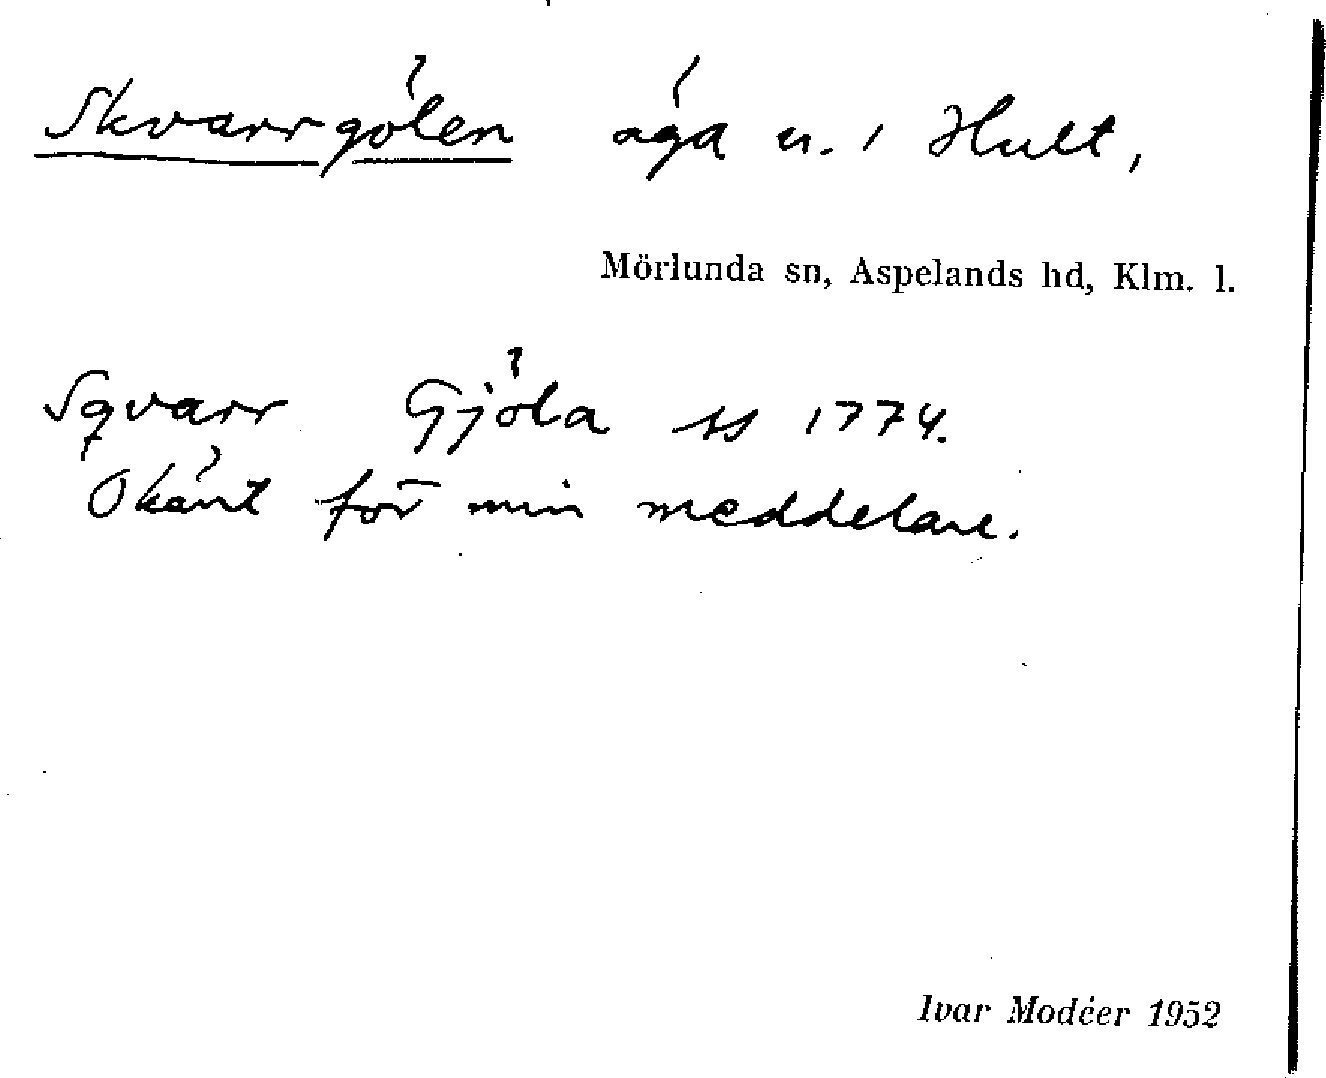 Skvarrgölen äga u. i Hult,
Mörlunda sn, Aspelands hd, Klm. l.
Sqvarr Gjöla ss 1774.
Okänt för min meddelare.
Ivar Modéer 1952